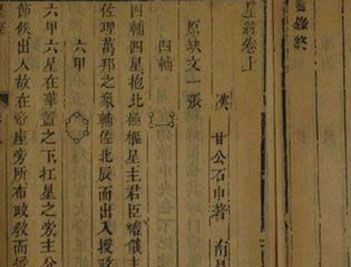 星經卷上
漢 甘公石申著
原缺文一張
四輔
四輔四星抱北極樞星主君臣禮儀主
佐理萬邦之象輔佐北辰而出入授政
六甲
六甲六星在華蓋之下杠星之旁主分
節候出入故在帝座旁所布政教而授